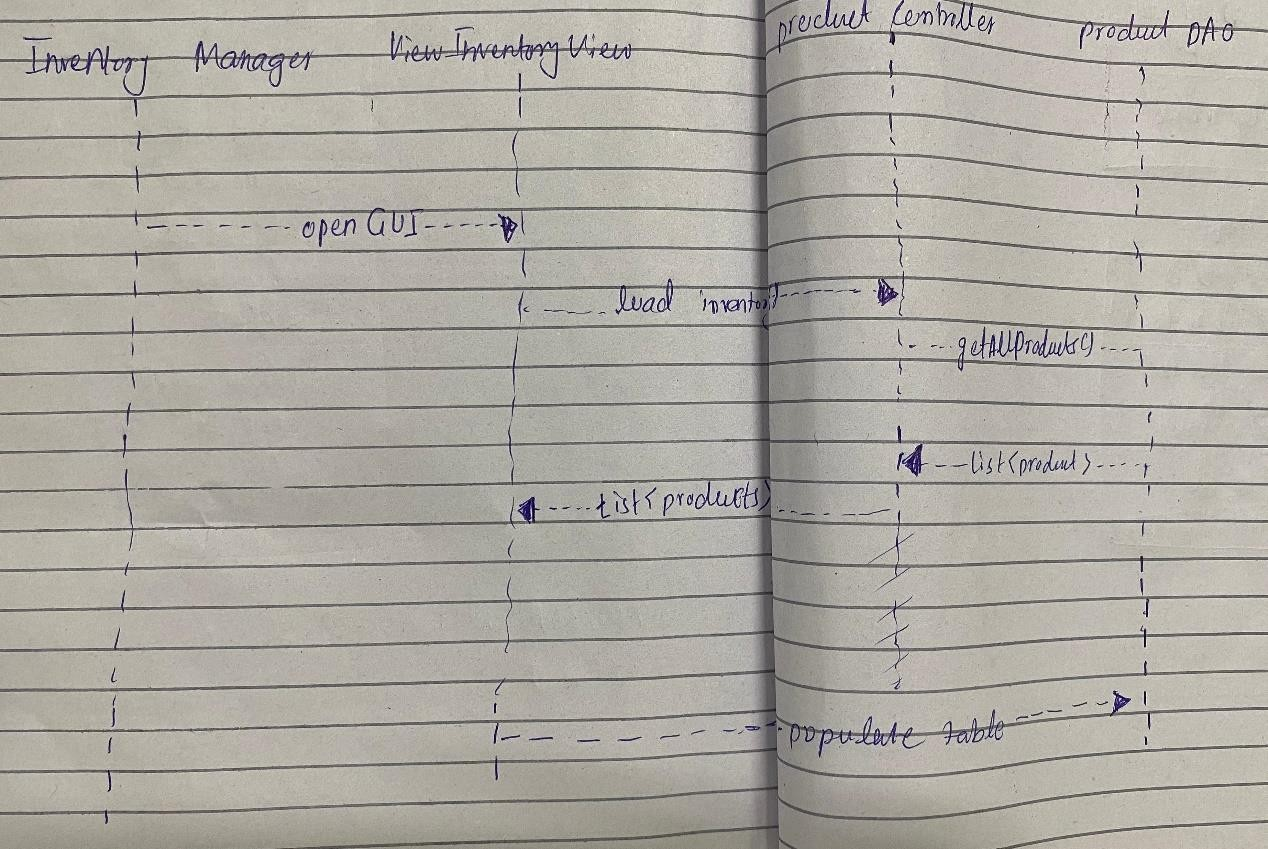 Inventory Manager View Inventory View product Controller product DAO
open GUI
load inventory
getAllProducts()
List<product>
List<products>
populate table